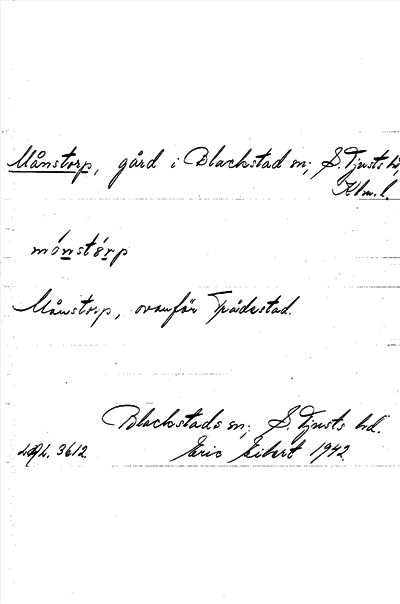 Månstorp, gård i Blackstad sn; S. Tjusts hd,
Klm. l.
mónstórp
Månstorp, ovanför Trädestad.
Blackstads sn; S. Tjusts hd.
3612. Eric Eibert 1942